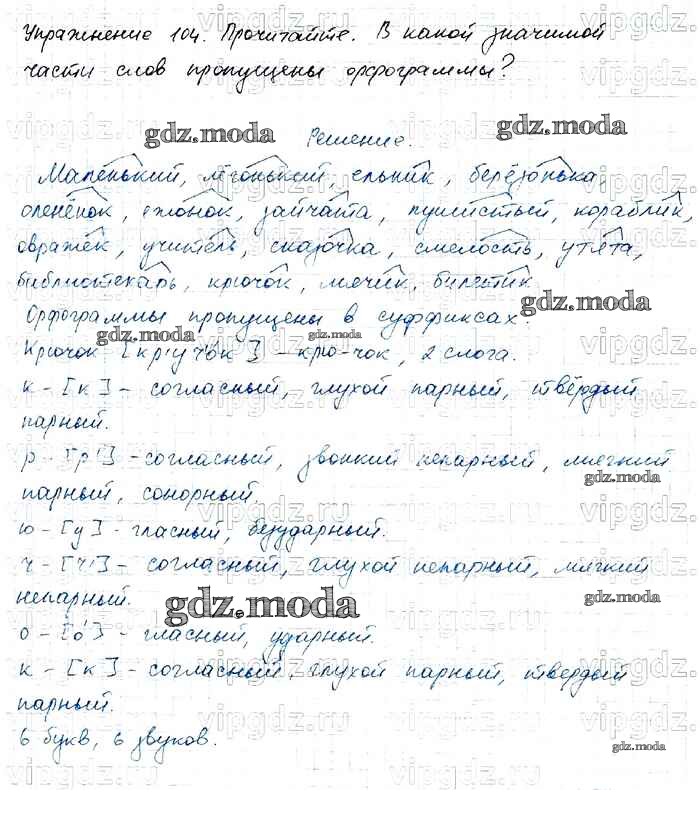 Упражнение 104. Прочитайте. В какой значимой
части слов пропущены орфограммы?
gdz.moda
Решение.
Маленький, лёгонький, ельник, берёзонька,
оленёнок, ежонок, зайчата, пушистый, кораблик,
овражек, учитель, сказочка, смелость, утята,
библиотекарь, крючок, мячик, билетик.
gdz.moda
Орфограммы пропущены в суффиксах.
gdz.moda gdz.moda
Крючок [кр'уч'ок] – крю-чок, 2 слога.
к – [к] – согласный, глухой парный, твёрдый
парный.
р – [р'] – согласный, звонкий непарный, мягкий
gdz.moda
парный, сонорный.
ю – [у] – гласный, безударный.
ч – [ч'] – согласный, глухой непарный, мягкий
непарный.
gdz.moda gdz.moda
о – [о́] – гласный, ударный.
к – [к] – согласный, глухой парный, твердый
парный.
6 букв, 6 звуков.
gdz.moda